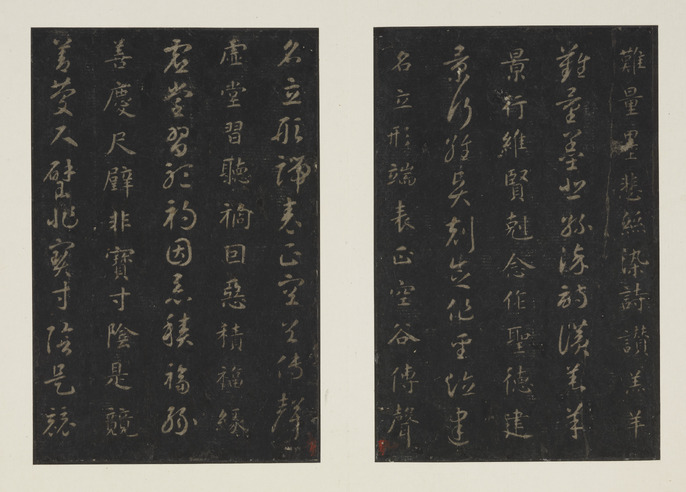 難量墨悲絲染詩讚羔羊
難量墨悲絲染詩讚羔羊
景行維賢剋念作聖德建
景行維賢剋念作聖德建
名立形端表正空谷傳聲
名立形端表正空谷傳聲
虛堂習聽禍因惡積福緣
虛堂習聽禍因惡積福緣
善慶尺璧非寶寸陰是競
善慶尺璧非寶寸陰是競